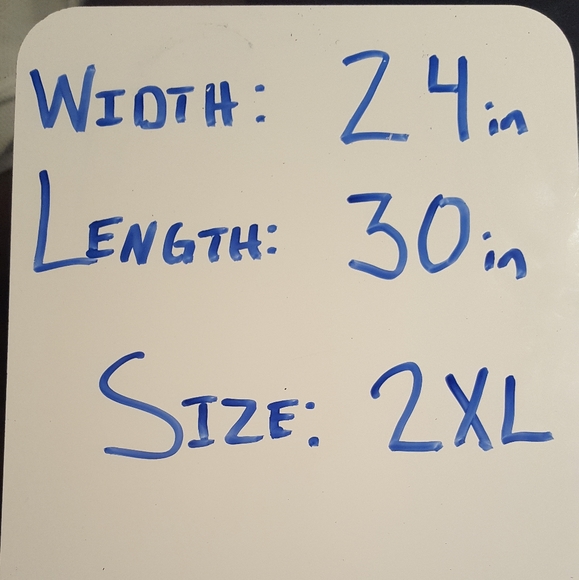 WIDTH: 24in
LENGTH: 30in
SIZE: 2XL